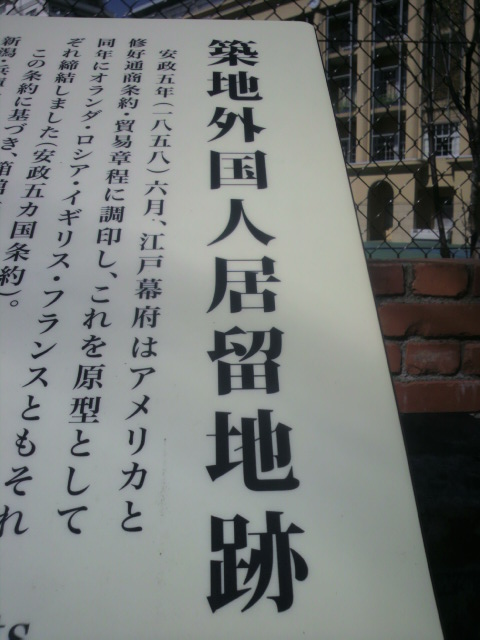 築地外国人居留地跡
安政五年(一八五八)六月、江戸幕府はアメリカと
修好通商条約・貿易章程に調印し、これを原型として
同年にオランダ・ロシア・イギリス・フランスともそれ
ぞれ締結しました(安政五カ国条約)。
この条約に基づき、箱館
新潟・兵庫
ts